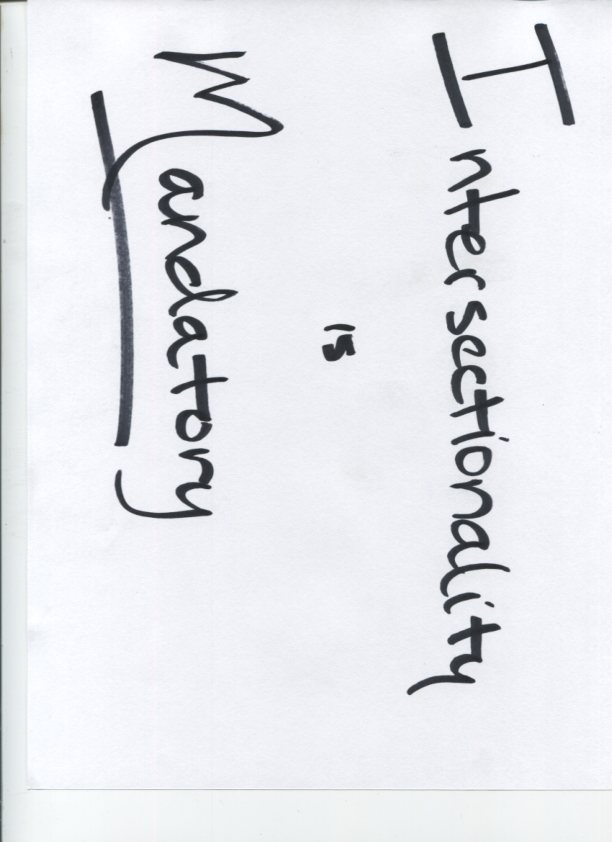 Intersectionality
is
Mandatory